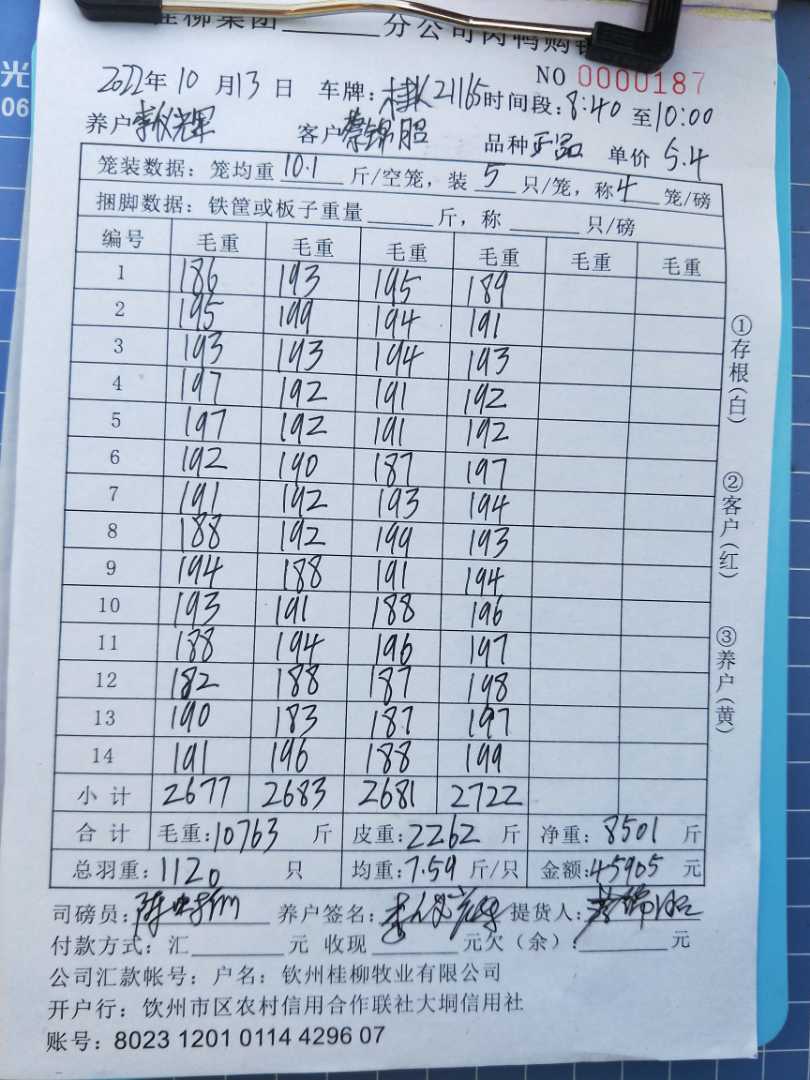 桂柳集团______分公司肉鸭购销
NO 0000187
2022年10月13日 车牌：桂K21165 时间段：8:40 至10:00
养户 客户 蔡锦昭 品种 正品 单价 5.4
笼装数据：笼均重 10.1 斤/空笼，装 5 只/笼，称 4 笼/磅
捆脚数据：铁筐或板子重量______斤，称______只/磅
编号 毛重 毛重 毛重 毛重 毛重 毛重
1 186 193 195 189
2 195 199 194 191
3 193 193 194 193
4 197 192 191 192
5 197 192 191 192
6 192 190 187 197
7 191 192 193 194
8 188 192 199 193
9 194 188 191 194
10 193 191 188 196
11 188 194 196 197
12 182 188 187 198
13 190 183 187 197
14 191 196 188 199
小计 2677 2683 2681 2722
合计 毛重：10763 斤 皮重：2262 斤 净重：8501 斤
总羽重：1120 只 均重：7.59 斤/只 金额：45905 元
司磅员： 养户签名： 提货人：蔡锦昭
付款方式：汇______元 收现______元欠（余）：______元
公司汇款帐号：户名：钦州桂柳牧业有限公司
开户行：饮州市区农村信用合作联社大垌信用社
账号：8023 1201 0114 4296 07
①存根（白）
②客户（红）
③养户（黄）
光
06